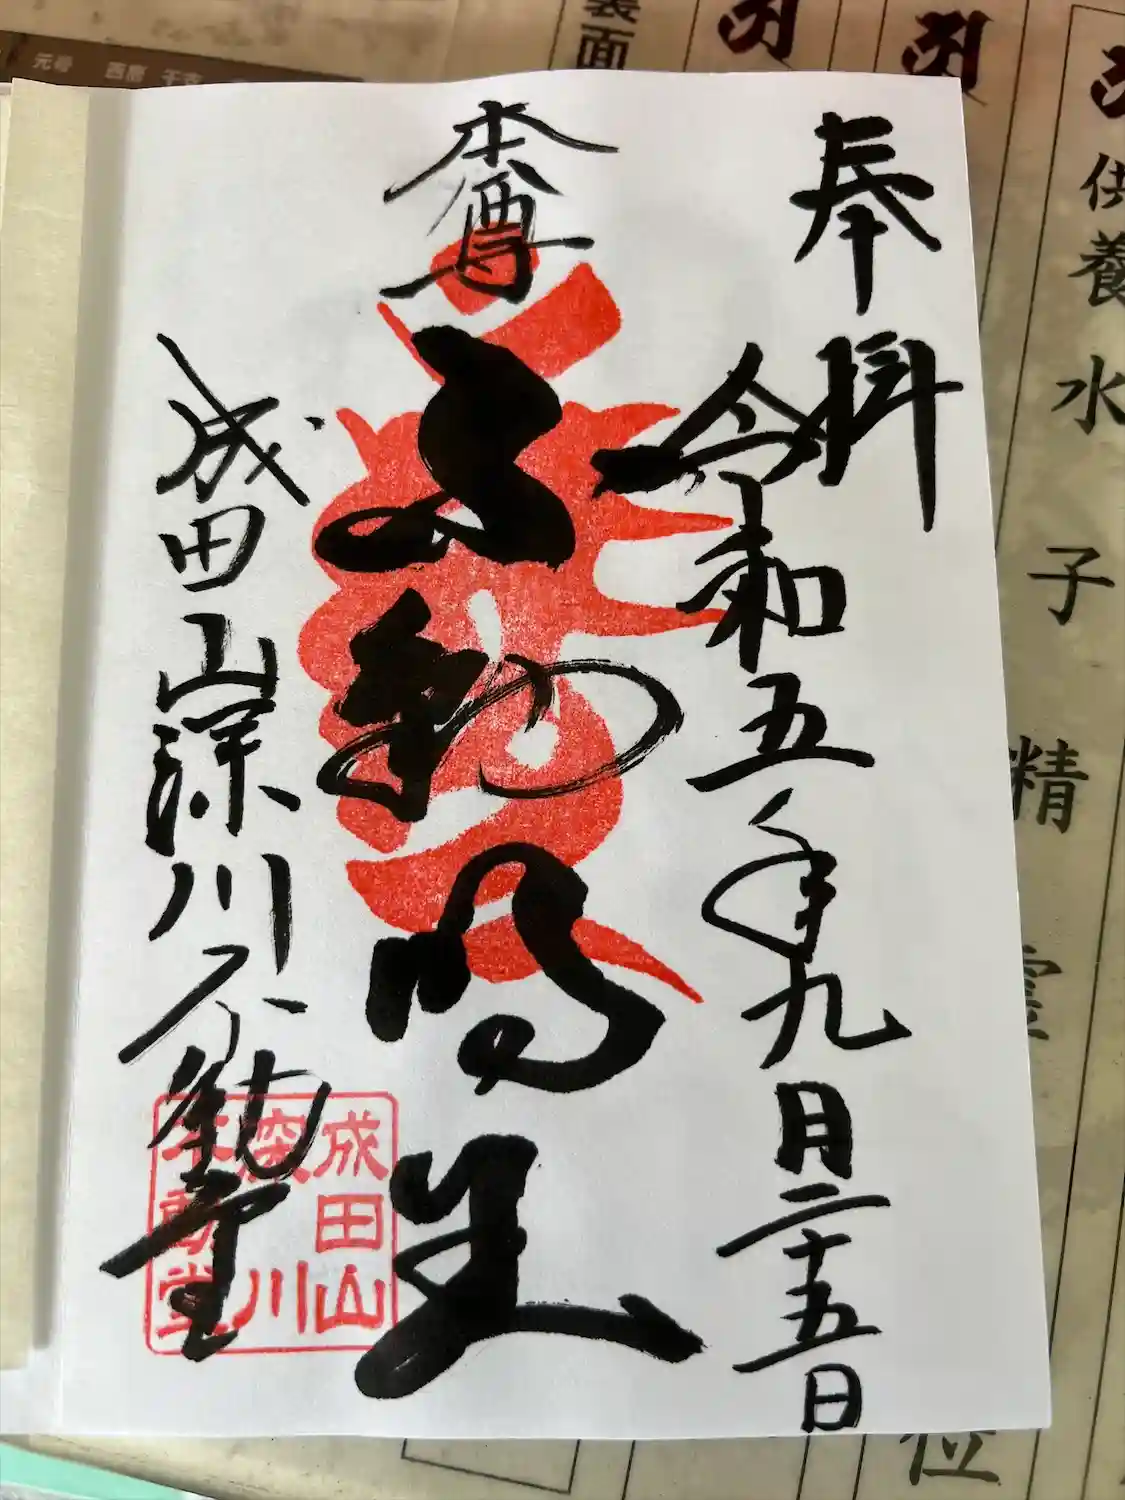 奉拝
令和五年九月二十五日
本尊
不動明王
成田山深川不動堂
成田山
深川
不動堂
裏面
供養水子精霊
位
元号 西暦 干支